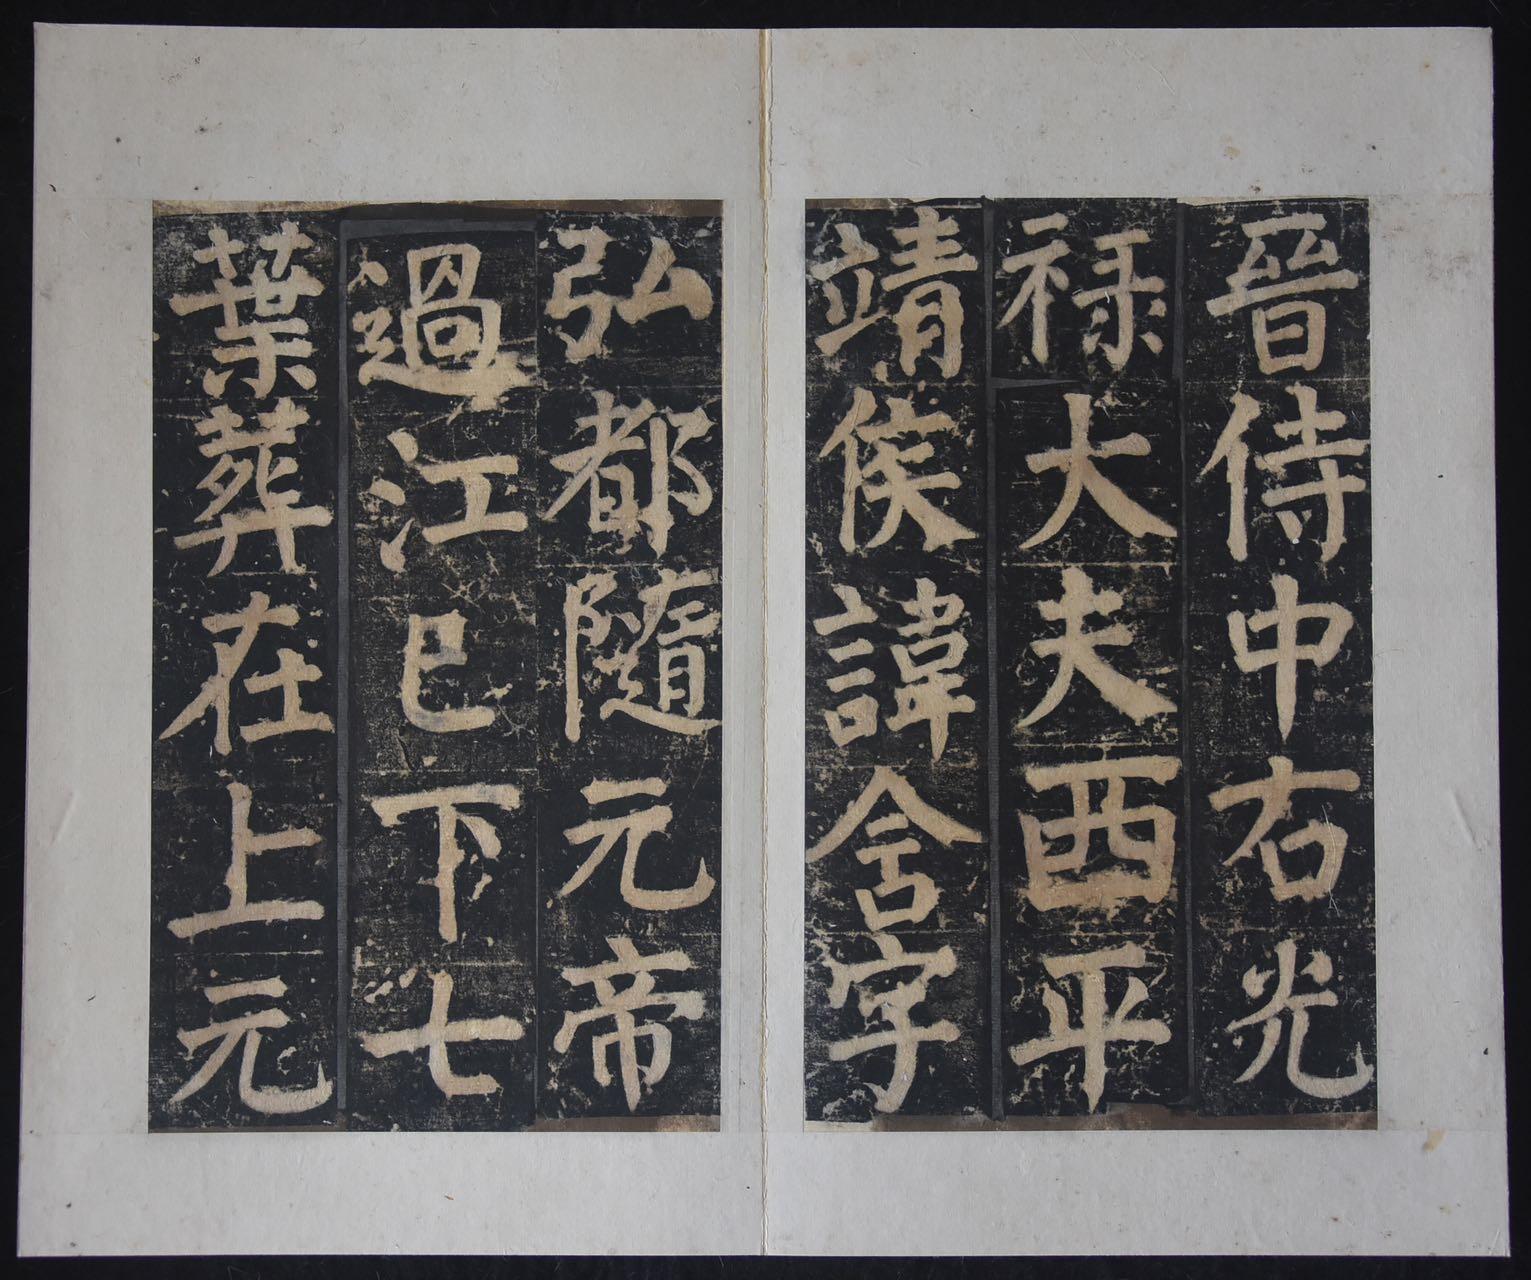 晉侍中右光
禄大夫西平
靖侯諱含字
弘都隨元帝
過江已下七
葉葬在上元